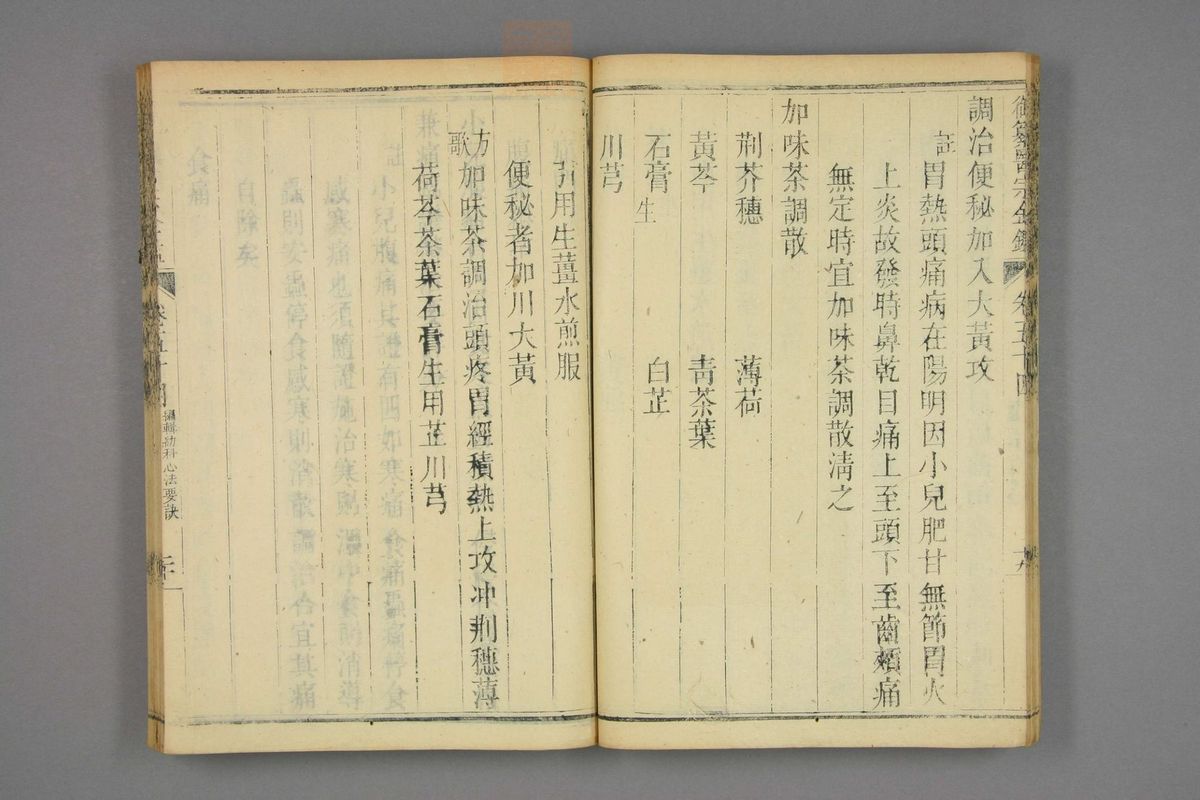 御纂醫宗金鑑 卷五十四
調治便秘加入大黃攻
註胃熱頭痛病在陽明因小兒肥甘無節胃火
上炎故發時鼻乾目痛上至頭下至齒頰痛
無定時宜加味茶調散清之
加味茶調散
荆芥穗 薄荷
黃芩 青茶葉
石膏生 白芷
川芎
引用生薑水煎服
便秘者加川大黃
方歌加味茶調治頭疼胃經積熱上攻冲荆穗薄
荷芩茶葉石膏生用芷川芎
編輯幼科心法要訣